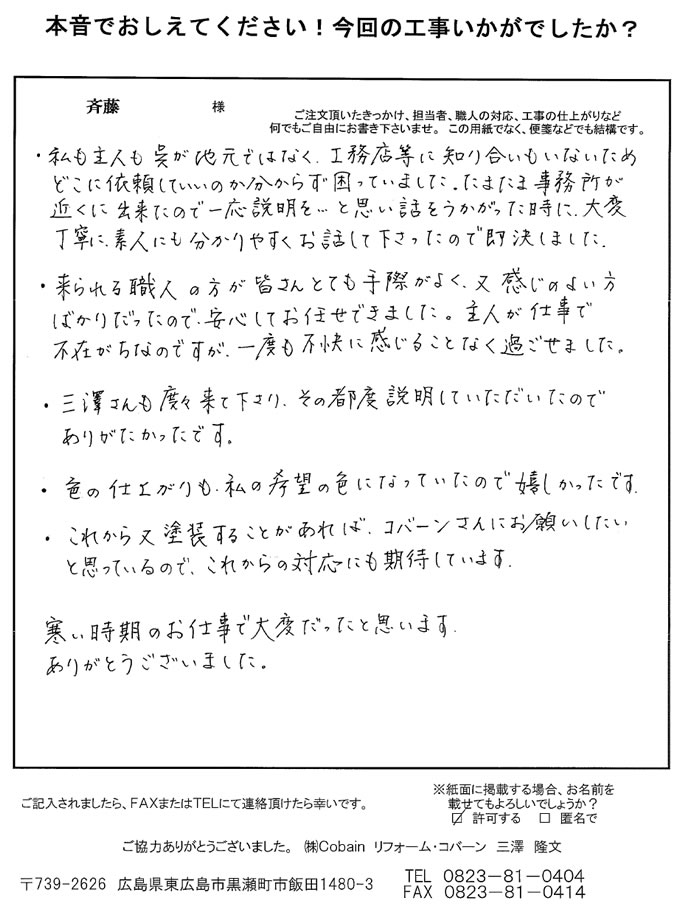 本音でおしえてください！今回の工事いかがでしたか？
斉藤　様
ご注文頂いたきっかけ、担当者、職人の対応、工事の仕上がりなど
何でもご自由にお書き下さいませ。この用紙でなく、便箋などでも結構です。
・私も主人も呉が地元ではなく、工務店等に知り合いもいないため
どこに依頼していいのか分からず困っていました。たまたま事務所が
近くに出来たので一応説明を…と思い話をうかがった時に、大変
丁寧に、素人にも分かりやすくお話して下さったので即決しました。
・来られる職人の方が皆さんとても手際がよく、又感じのよい方
ばかりだったので、安心してお任せできました。主人が仕事で
不在がちなのですが、一度も不快に感じることなく過ごせました。
・三澤さんも度々来て下さり、その都度説明していただいたので
ありがたかったです。
・色の仕上がりも、私の希望の色になっていたので嬉しかったです。
・これから又塗装することがあれば、コバーンさんにお願いしたい
と思っているので、これからの対応にも期待しています。
寒い時期のお仕事で大変だったと思います。
ありがとうございました。
ご記入されましたら、FAXまたはTELにて連絡頂けたら幸いです。
※紙面に掲載する場合、お名前を
載せてもよろしいでしょうか？
☑ 許可する　□ 匿名で
ご協力ありがとうございました。㈱Cobain リフォーム・コバーン 三澤 隆文
〒739-2626 広島県東広島市黒瀬町市飯田1480-3
TEL 0823－81－0404
FAX 0823－81－0414